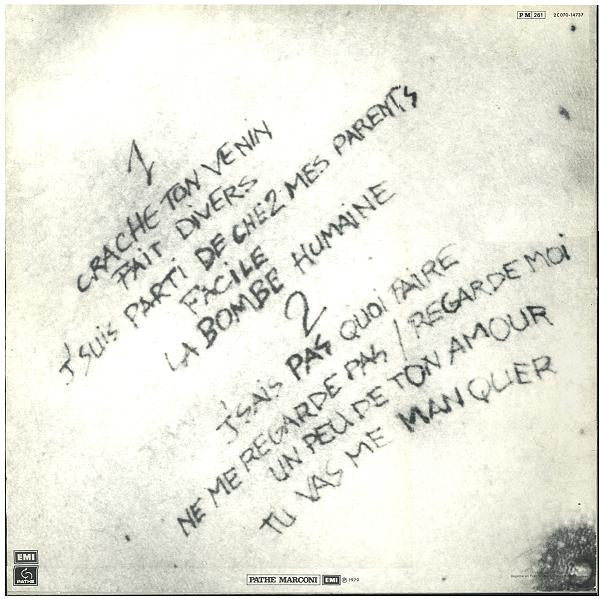 PM 261 2C070-14737
1
CRACHE TON VENIN
FAIT DIVERS
J'SUIS PARTI DE CHEZ MES PARENTS
FACILE
LA BOMBE HUMAINE
2
J'SAIS PAS QUOI FAIRE
NE ME REGARDE PAS / REGARDE MOI
UN PEU DE TON AMOUR
TU VAS ME MANQUER
EMI
PATHE
PATHE MARCONI EMI ℗ 1979